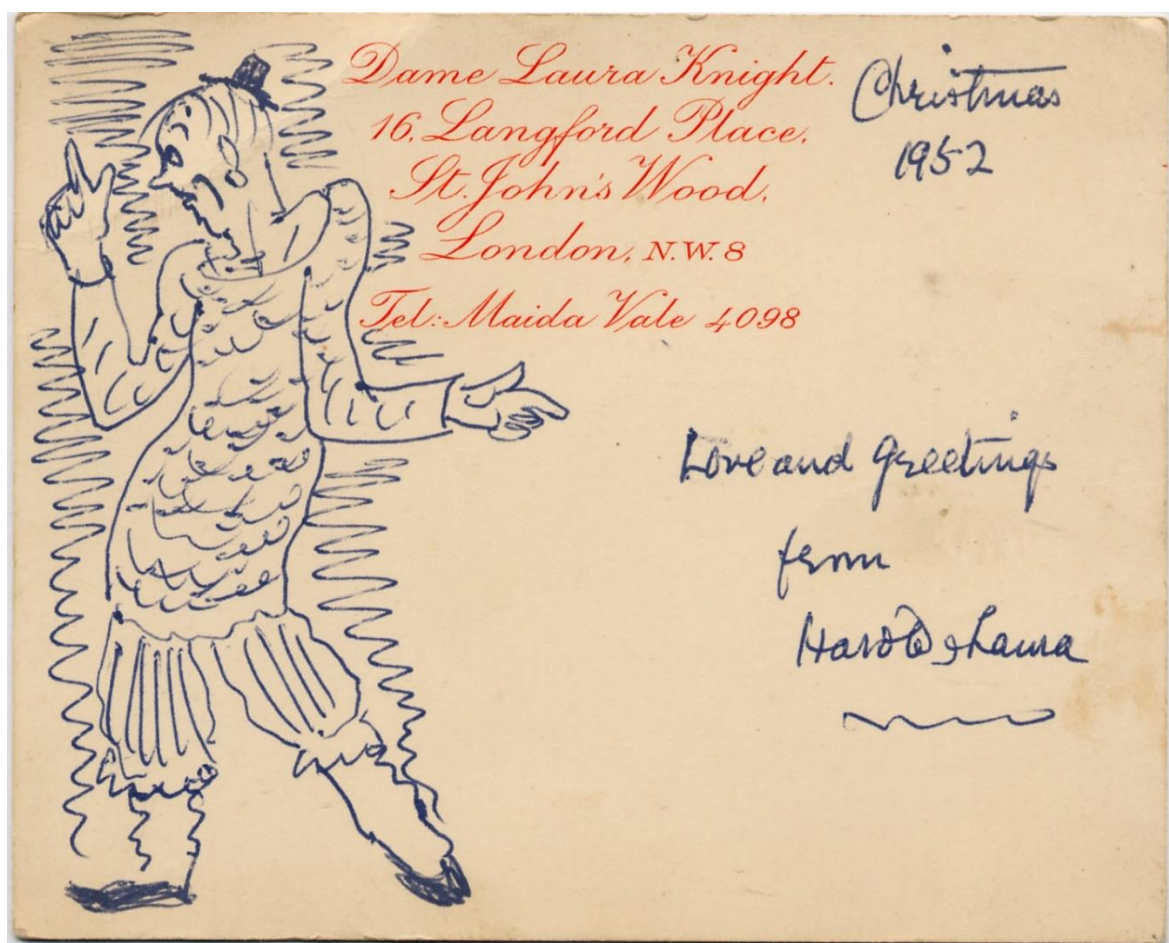 Dame Laura Knight.
16, Langford Place,
St. John's Wood,
London, N.W.8
Tel: Maida Vale 4098
Christmas
1952
Love and Greetings
from
Harold & Laura